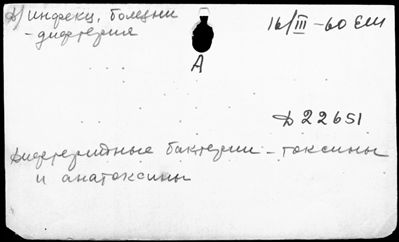 Д/ инфекц. болезни
- дифтерия
16/III -60 ЕШ
А
Д 22651
Дифтерийные бактерии - токсины
и анатоксины